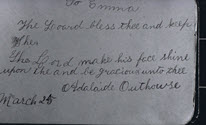 To Emma
The Loard bless thee and keep
thee
The Lord make his face shine
upon the and be gracious unto thee
Adelaide Outhouse
March 25